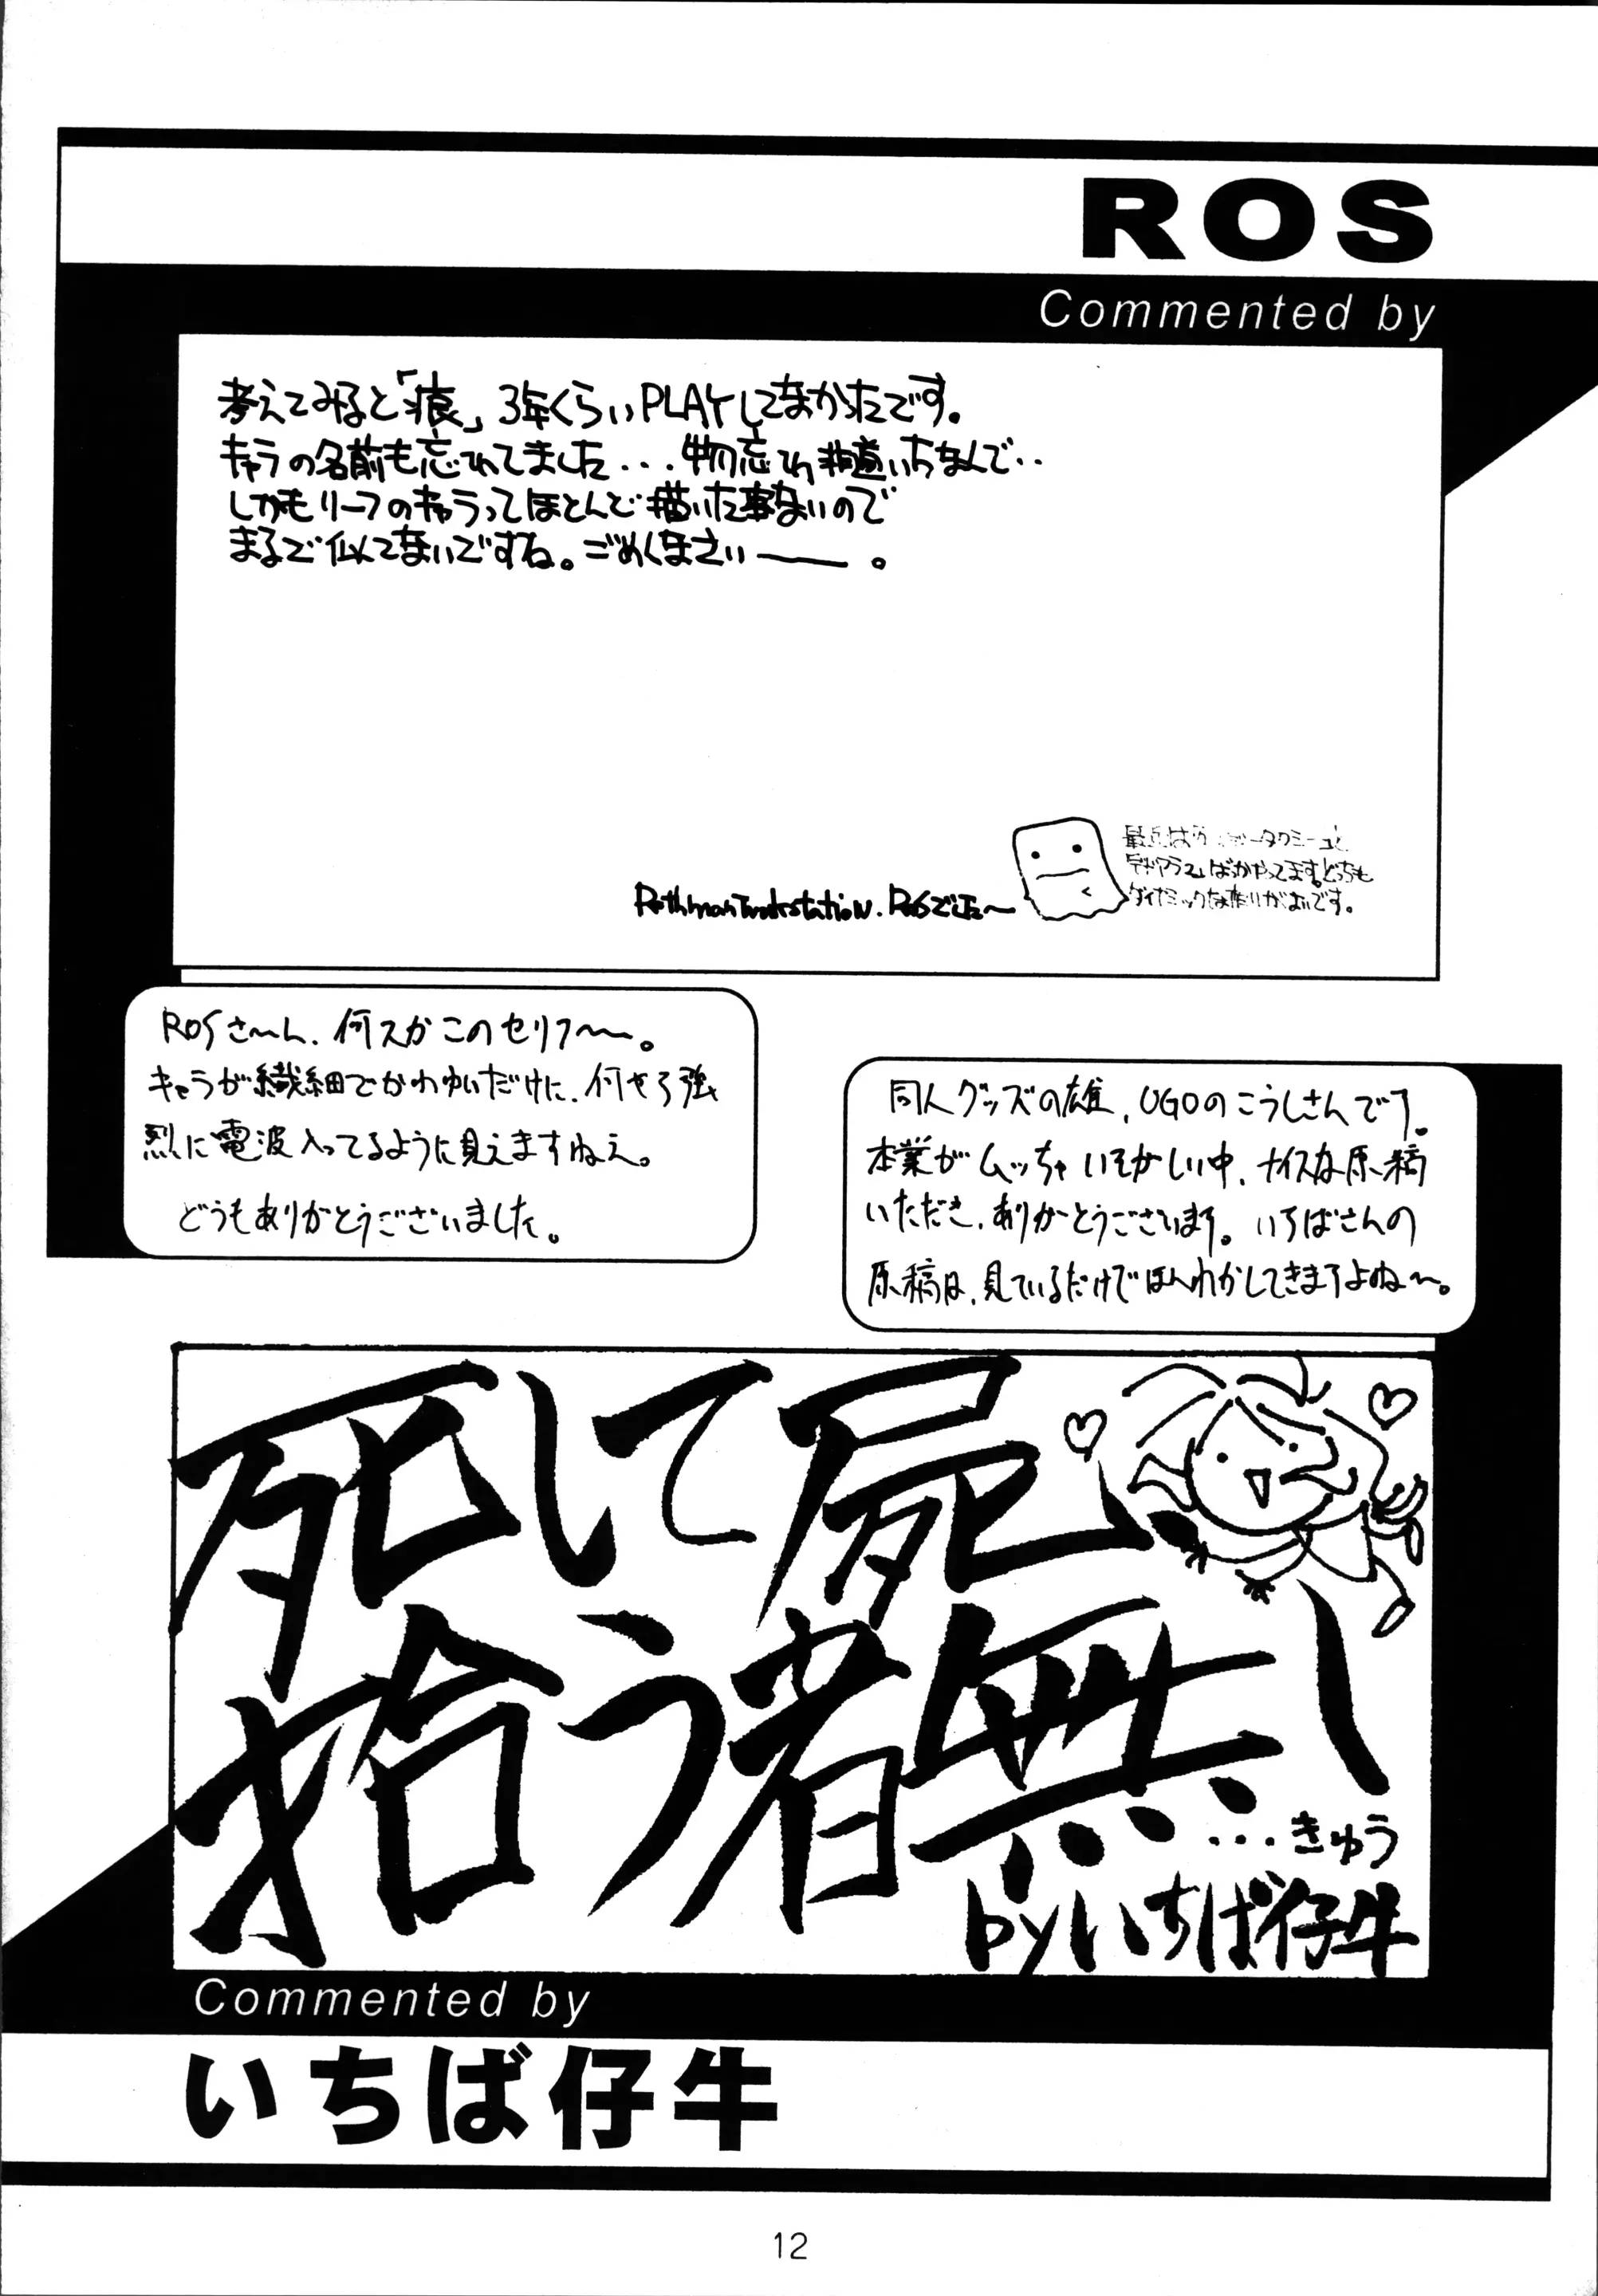 ROS
Commented by
考えてみると「痕」3年くらいPLAYしてなかったです。
キャラの名前も忘れてました...物忘れ非道いちなんで..
しかもリーフのキャラってほとんど描いた事ないので
まるで似てないですね。ごめくなさい——。
最近は
ばっかやってます。どっちも
ダイナミックな作りがよいです。
ROSでした〜
ROSさ〜ん、何スかこのセリフ〜。
キャラが繊細でかわゆいだけに、何せろ強
烈に電波入ってるように見えますねえ。
どうもありがとうございました。
同人グッズの雄、UGOのこうしさんです。
本業がムッチャいそがしい中、ナイスな原稿
いただき、ありがとうございます。いちばさんの
原稿は、見ているだけでほんわかしてきますよね〜。
死して屍
拾う者無し
...きゅう
byいちば仔牛
Commented by
いちば仔牛
12